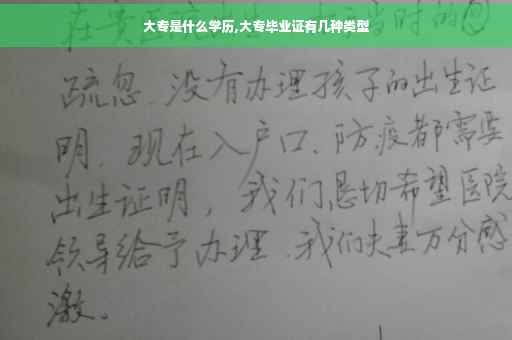 大专是什么学历,大专毕业证有几种类型
疏忽.没有办理孩子的出生证
明.现在入户口、防疫都需要
出生证明，我们恳切希望医院
领导给予办理.我们夫妻万分感
激。